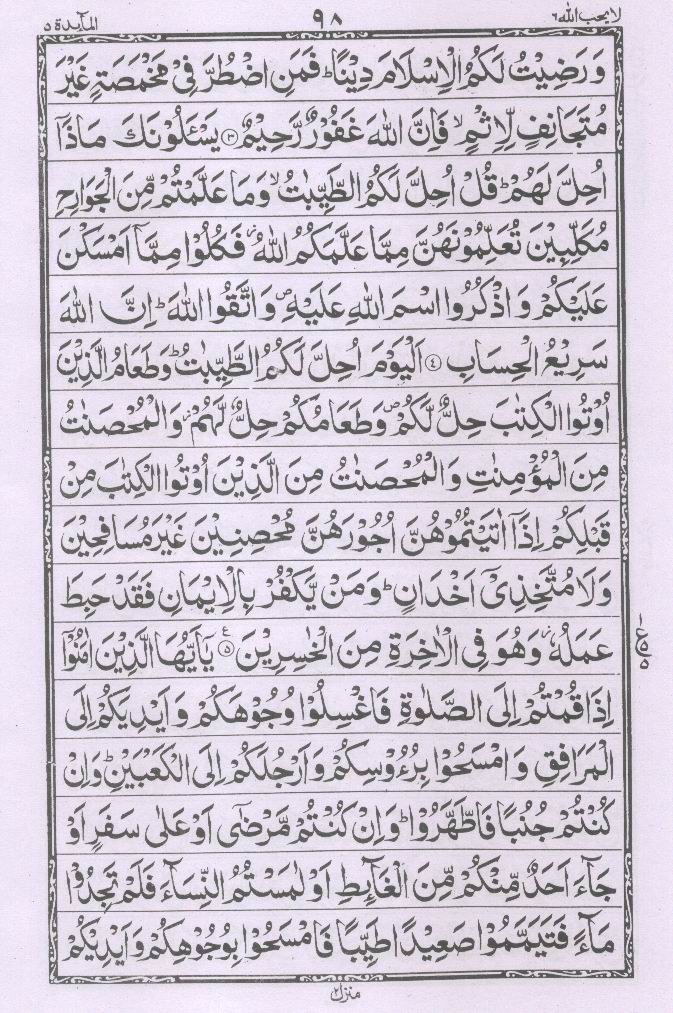 لا یحب الله ٦ ٩٨ المآئدة ٥
وَ رَضِیْتُ لَكُمُ الْاِسْلَامَ دِیْنًا ؕ فَمَنِ اضْطُرَّ فِیْ مَخْمَصَةٍ غَیْرَ
مُتَجَانِفٍ لِّاِثْمٍ ۙ فَاِنَّ اللّٰهَ غَفُوْرٌ رَّحِیْمٌ ﴿۳﴾ یَسْـَٔلُوْنَكَ مَاذَاۤ
اُحِلَّ لَهُمْ ؕ قُلْ اُحِلَّ لَكُمُ الطَّیِّبٰتُ ۙ وَ مَا عَلَّمْتُمْ مِّنَ الْجَوَارِحِ
مُكَلِّبِیْنَ تُعَلِّمُوْنَهُنَّ مِمَّا عَلَّمَكُمُ اللّٰهُ ؗ فَكُلُوْا مِمَّاۤ اَمْسَكْنَ
عَلَیْكُمْ وَ اذْكُرُوا اسْمَ اللّٰهِ عَلَیْهِ ۪ وَ اتَّقُوا اللّٰهَ ؕ اِنَّ اللّٰهَ
سَرِیْعُ الْحِسَابِ ﴿٤﴾ اَلْیَوْمَ اُحِلَّ لَكُمُ الطَّیِّبٰتُ ؕ وَ طَعَامُ الَّذِیْنَ
اُوْتُوا الْكِتٰبَ حِلٌّ لَّكُمْ ۪ وَ طَعَامُكُمْ حِلٌّ لَّهُمْ ؗ وَ الْمُحْصَنٰتُ
مِنَ الْمُؤْمِنٰتِ وَ الْمُحْصَنٰتُ مِنَ الَّذِیْنَ اُوْتُوا الْكِتٰبَ مِنْ
قَبْلِكُمْ اِذَاۤ اٰتَیْتُمُوْهُنَّ اُجُوْرَهُنَّ مُحْصِنِیْنَ غَیْرَ مُسَافِحِیْنَ
وَ لَا مُتَّخِذِیْۤ اَخْدَانٍ ؕ وَ مَنْ یَّكْفُرْ بِالْاِیْمَانِ فَقَدْ حَبِطَ
عَمَلُهٗ ؗ وَ هُوَ فِی الْاٰخِرَةِ مِنَ الْخٰسِرِیْنَ ﴿۵﴾ ع یٰۤاَیُّهَا الَّذِیْنَ اٰمَنُوْۤا
اِذَا قُمْتُمْ اِلَی الصَّلٰوةِ فَاغْسِلُوْا وُجُوْهَكُمْ وَ اَیْدِیَكُمْ اِلَی
الْمَرَافِقِ وَ امْسَحُوْا بِرُءُوْسِكُمْ وَ اَرْجُلَكُمْ اِلَی الْكَعْبَیْنِ ؕ وَ اِنْ
كُنْتُمْ جُنُبًا فَاطَّهَّرُوْا ؕ وَ اِنْ كُنْتُمْ مَّرْضٰۤی اَوْ عَلٰی سَفَرٍ اَوْ
جَآءَ اَحَدٌ مِّنْكُمْ مِّنَ الْغَآىِٕطِ اَوْ لٰمَسْتُمُ النِّسَآءَ فَلَمْ تَجِدُوْا
مَآءً فَتَیَمَّمُوْا صَعِیْدًا طَیِّبًا فَامْسَحُوْا بِوُجُوْهِكُمْ وَ اَیْدِیْكُمْ
منزل ٢